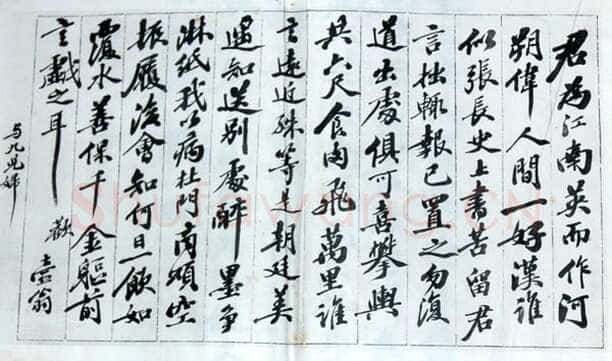 君為江南英而作河
朔偉人間一好漢誰
似張長史上書苦留君
言拙輒報已置之勿復
道出處俱可喜攀輿
共六尺食肉飛萬里誰
言遠近殊等是朝廷美
遙知送別處醉墨爭
淋紙我以病杜門商頌空
振履後會知何日一飲如
覆水善保千金軀前
言戲之耳 歡 壺翁